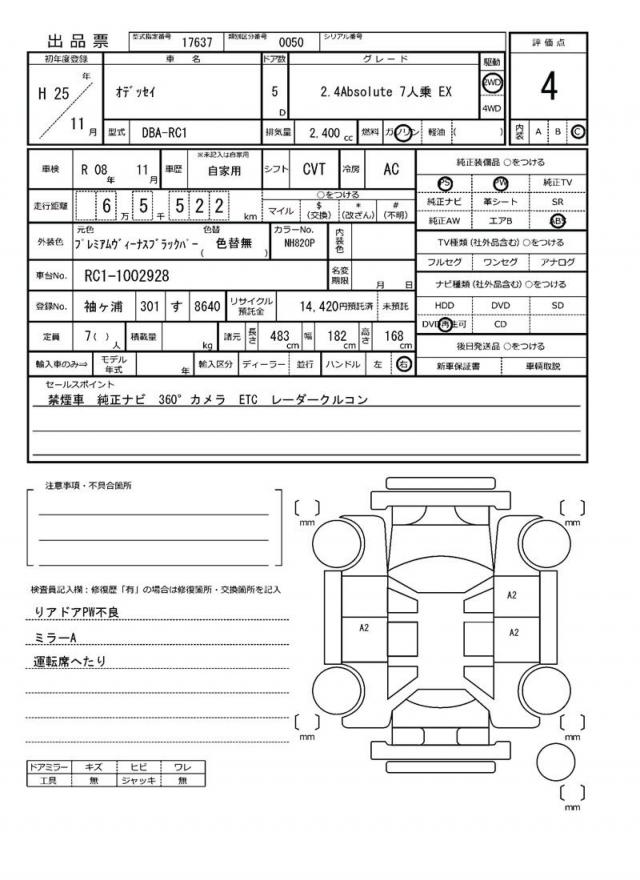 出品票 型式指定番号 17637 類別区分番号 0050 シリアル番号
評価点
初年度登録 車名 ドア数 グレード 駆動
H 25 年 11 月
オデッセイ 5 D 2.4Absolute 7人乗 EX 2WD 4WD
4
型式 DBA-RC1 排気量 2,400 cc 燃料 ガソリン 軽油 ( )
内装 A B C
車検 R 08 年 11 月 車歴 ※未記入は自家用 自家用 シフト CVT 冷房 AC
走行距離 6 万 5 千 5 2 2 km
○をつける
マイル $ (交換) * (改ざん) # (不明)
外装色 元色 プレミアムヴィーナスブラックパー 色替 ( 色替無 ) カラーNo. NH820P 内装色
車台No. RC1-1002928 名変期限 月 日
登録No. 袖ヶ浦 301 す 8640 リサイクル預託金 14,420円預託済 未預託
定員 7( ) 人 積載量 kg 諸元 長さ 483 cm 幅 182 cm 高さ 168 cm
輸入車のみ⇒ モデル年式 年 輸入区分 ディーラー 並行 ハンドル 左 右
純正装備品 ○をつける
PS PW 純正TV
純正ナビ 革シート SR
純正AW エアB ABS
TV種類(社外品含む)○をつける
フルセグ ワンセグ アナログ
ナビ種類(社外品含む)○をつける
HDD DVD SD
DVD再生可 CD
後日発送品 ○をつける
新車保証書 車輌取説
セールスポイント
禁煙車 純正ナビ 360°カメラ ETC レーダークルコン
注意事項・不具合箇所
検査員記入欄:修復歴「有」の場合は修復箇所・交換箇所を記入
りアドアPW不良
ミラーA
運転席へたり
ドアミラー キズ ヒビ ワレ
工具 無 ジャッキ 無
mm
mm
A2
A2
A2
mm
mm
mm